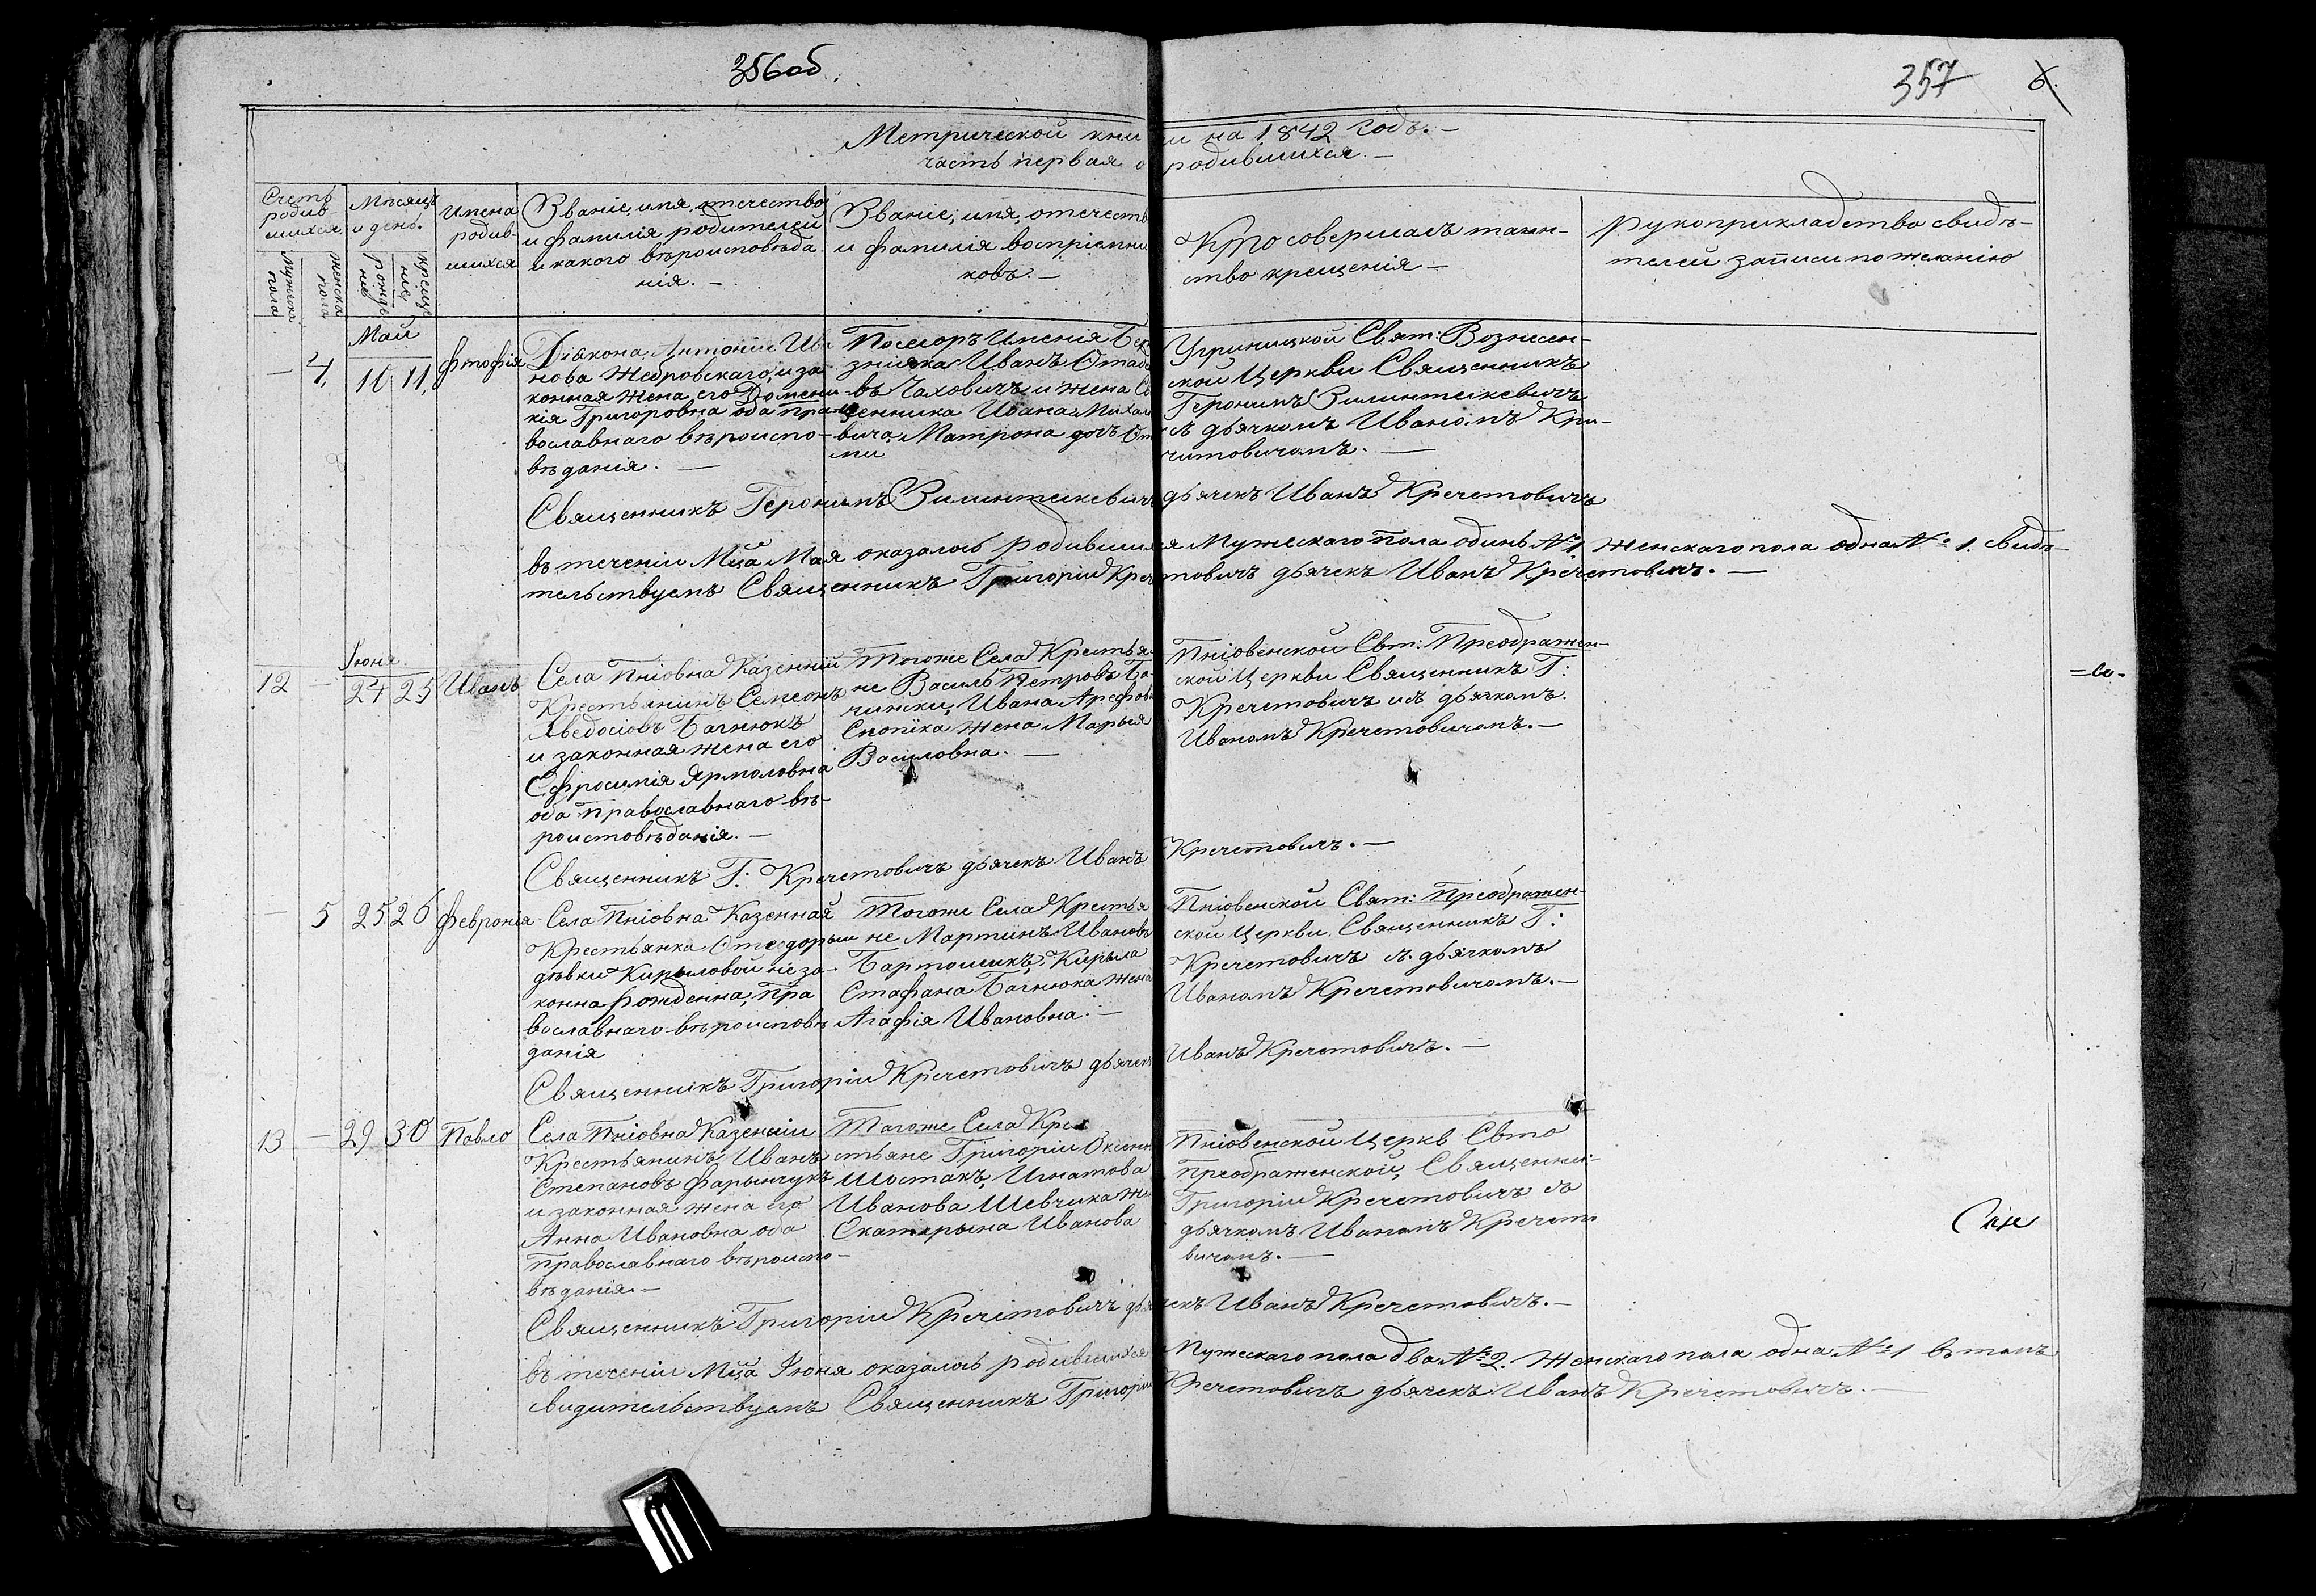 356об.
357
6.
Метрической кни
ги на 1842 годъ.—
часть первая о
родившихся.—
Счетъ родив шихся
Мѣсяцъ и день.
Имена родив- шихся
Званіе, имя, отчество и фамилія родителей и какого вѣроисповѣда нія.—
Званіе, имя, отчеств и фамилія воспріемни ковъ.—
Кто совершалъ таин- ство крещенія—
Рукоприкладство свидѣ- телей записи по желанію
Мужеска пола
женска пола
рожде ніе
креще ніе
Май
— 4, 10 11,
Діякона Антонія Ива
нова Жебровскаго, и за
конная жена его Домени
кія Григоровна оба пра
вославнаго вѣроиспо-
вѣданія.—
Посесоръ Именія
Иванъ
въ Чаховичъ и жена
щенника Ивана Михал
вича Матрона дочь
ми
Угриницкой Свят: Вознесен-
ской Церкви Священникъ
Геронимъ Зилинткевичъ
съ дьячкомъ Иваномъ Кри-
читовичомъ.—
Священникъ Геронимъ дьячекъ Иванъ Кречетовичъ
въ теченіи Мца Мая оказалось родившихся Мужескаго пола одинъ № 1. женскаго пола одна № 1. свидѣ-
тельствуемъ Священникъ Григорій Кречетовичъ дьячекъ Иванъ Кречетовичъ.—
Іюня
12 — 24 25 Иванъ
Села Пніовна Казенній
Крестьянинъ Семеонъ
Хведосіовъ Багнюкъ
и законная жена его
Ефросинія Ярмоловна
оба православнаго вѣ-
роисповѣданія.—
Тогоже Села Крестья
не Василь Петровъ Ба-
чински, Ивана Арефов
жена Марыя
Василовна.—
Пніовенской Свт: Преображен-
ской Церкви Священникъ Г:
Кречетовичъ изъ дьячкомъ
Иваномъ Кречетовичомъ.—
Священникъ Г: Кречетовичъ дьячекъ Иванъ Кречетовичъ.—
— 5 25 26 Февронія
Села Пніовна Казенная
Крестьянка
дѣвки Кирыловой неза-
конна рожденна, пра
вославнаго вѣроисповѣ
данія
Тогоже Села Крестья
не Мартинъ Ивановъ
Бартошикъ, Кирыла
Стафана Багнюка жена
Агафія Ивановна.—
Пніовенской Свят: Преображен-
ской Церкви, Священникъ Г:
Кречетовичъ съ дьячкомъ
Иваномъ Кречетовичомъ.—
Священникъ Григорій Кречетовичъ дьячекъ Иванъ Кречетовичъ.—
13 — 29 30 Павло
Села Пніовна Казенній
Крестьянинъ Иванъ
Степановъ Фарынчукъ
и законная жена его
Анна Ивановна оба
православнаго вѣроиспо-
вѣданія.—
Тогоже Села Кре
стьяне Григорій
Шостакъ, Игнатова
Иванова Шевчика
Скатерына Иванова
Пніовенской Церкв Свто
Преображенской, Священни-
Григорій Кречетовичъ съ
дьячкомъ Иваномъ Кречето
вичомъ.—
Священникъ Григорій Кречетовичъ дьячекъ Иванъ Кречетовичъ.—
въ теченіи Мца Іюня оказалось родившихся Мужескаго пола два № 2. Женскаго пола одна № 1 въ томъ
свидительствуемъ Священникъ Григорій Кречетовичъ дьячекъ Иванъ Кречетовичъ.—